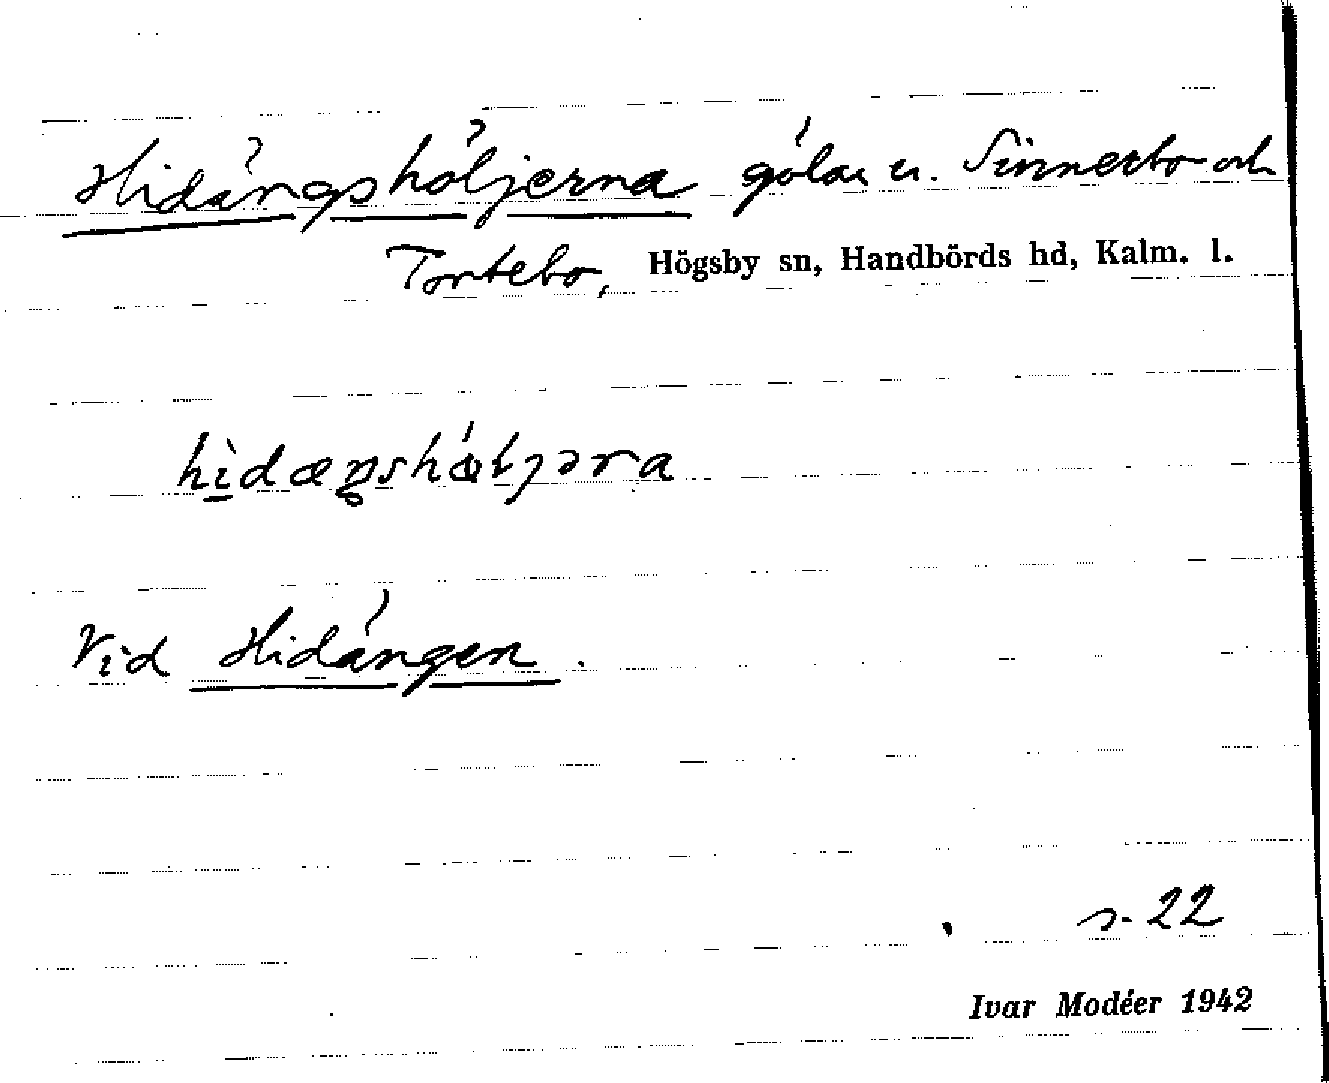 Hidängshöljerna gölar u. Sinnerbo och
Tortebo, Högsby sn, Handbörds hd, Kalm. l.
Vid Hidängen.
s. 22
Ivar Modéer 1942